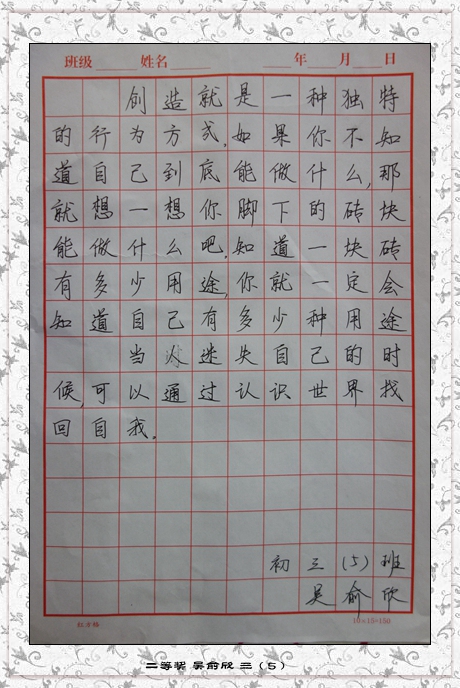 班级 姓名 年 月 日
创造就是一种独特
的行为方式。如果你不知
道自己到底能做什么,那
就想一想你脚下的砖块
能做什么吧。知道一块砖
有多少用途,你就一定会
知道自己有多少种用途
当人迷失自己的时
候,可以通过认识世界找
回自我。
初三(5)班
吴俞欣
红方格 10×15=150
二等奖 吴俞欣 三(5)